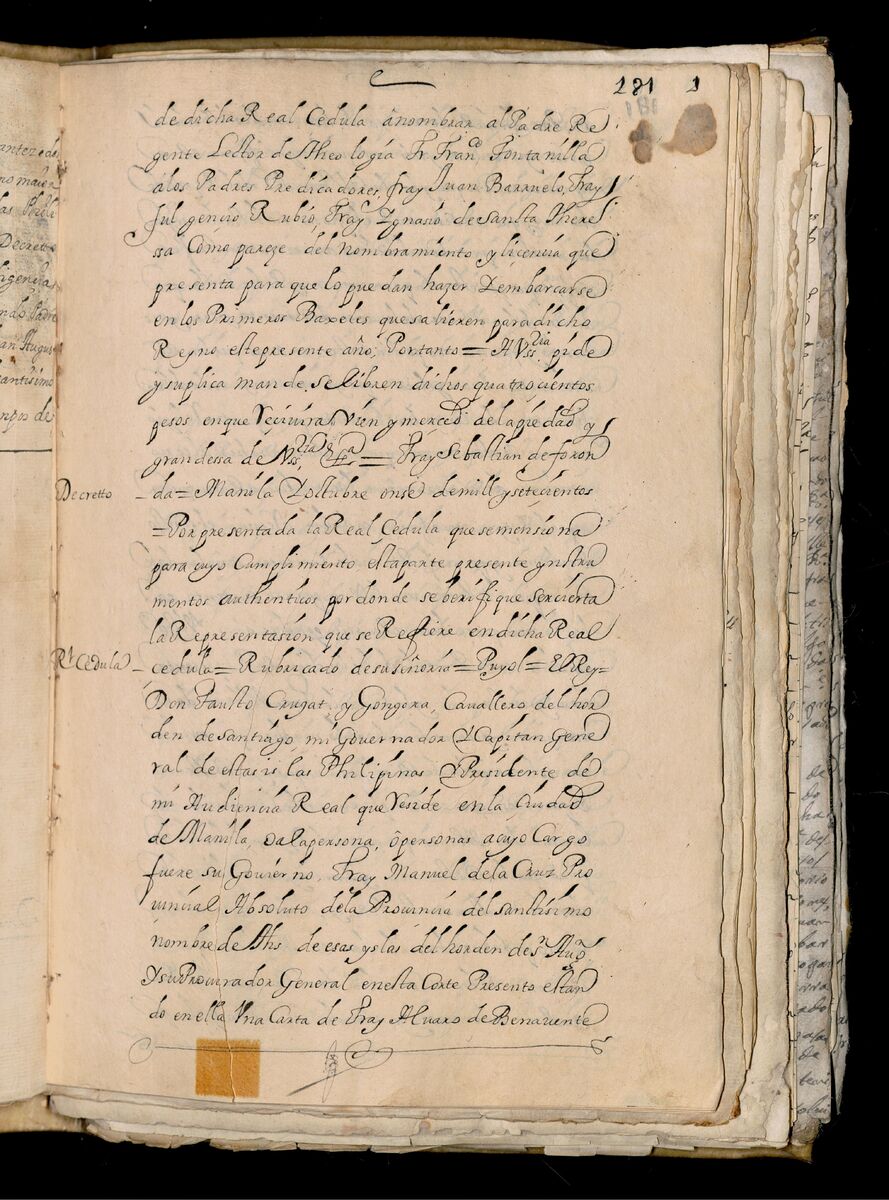 181 1
de dicha Real Cedula ânombrar al Padre Re
gente Lector de Theologia Fr Fran.co Fontanilla
âlos Padres Predicadores, fray Juan Barruelo, Fray
fulgencio Rubio, Fray Ygnasio de Sancta There
ssa Como pareze del nombramiento y licencia que
presenta para que lo puedan hazer Yembarcarse
en los Primeros Baxeles que salieren para dicho
Reyno este presente año; Portanto = A Vss.ria pide
y suplica mande se libren dichos quatrocientos
pesos en que Recivira Vien y merced de la piedad y
grandessa de Vss.ria = Fray Sebastian de foron
Decretto
da = Manila Yoctubre onse de mill y setecientos
= Por presentada la Real Cedula que se mensiona
para cuyo Cumplimiento esta parte presente ynstru
mentos authenticos por donde se berifique ser cierta
la Representasion que se Refiere en dicha Real
Rl Cedula
cedula = Rubricado de su señoria = Puyol = El Rey =
Don Fausto Crugat y Gongora, Cavallero del hor
den de Santiago mi Governador Y Capitan Gene
ral de estas islas Philipinas Y Presidente de
mi Audiencia Real que Reside en la Ciudad
de Manila, oala persona, ô personas a cuyo Cargo
fuere su Govierno. Fray Manuel de la Cruz Pro
vincial Absoluto de la Provincia del santisimo
nombre de Jhs de esas yslas del horden de Sn Augn
Y su Procurador General en esta Corte Presento estan
do en ella Vna Carta de Fray Alvaro de Benavente